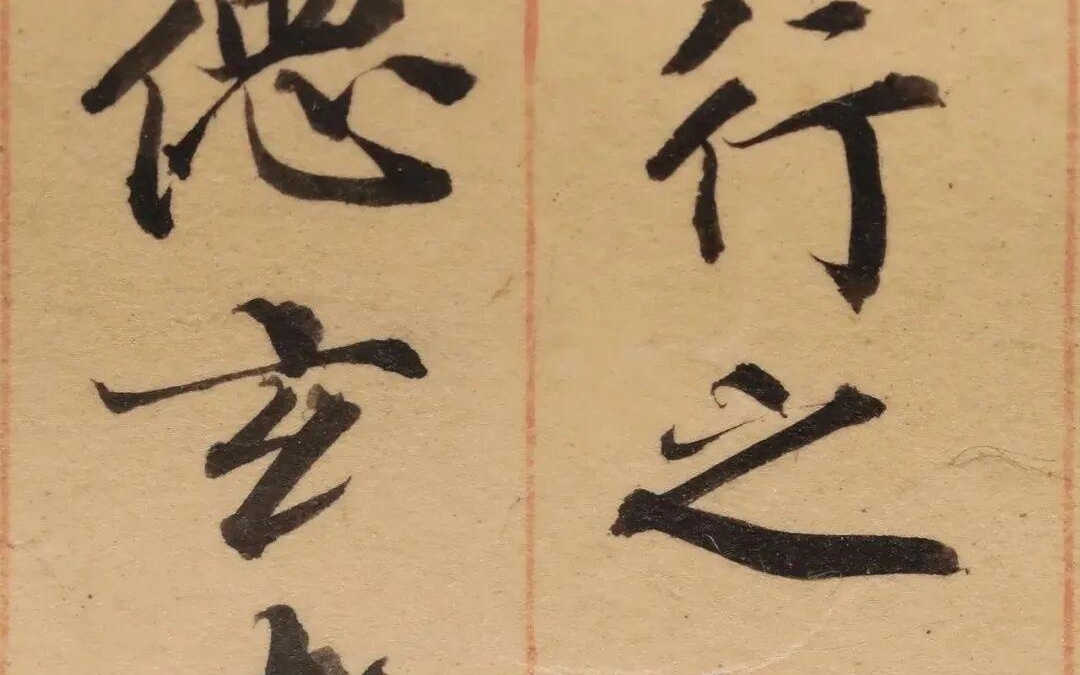 行之
德玄